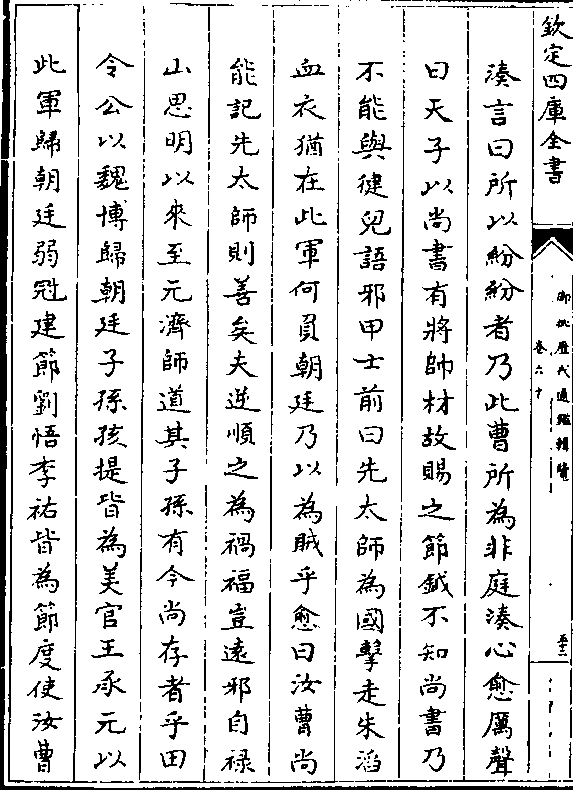 欽定四庫全書
御批歷代通鑑輯覽
卷六十
至三
湊言曰所以紛紛者乃此曹所為非庭湊心愈厲聲
曰天子以尚書有將帥材故賜之節鉞不知尚書乃
不能與健兒語邪甲士前曰先太師為國擊走朱滔
血衣猶在此軍何負朝廷乃以為賊乎愈曰汝曹尚
能記先太師則善矣夫逆順之為禍福豈遠邪自祿
山思明以來至元濟師道其子孫有今尚存者乎田
令公以魏博歸朝廷子孫孩提皆為美官王承元以
此軍歸朝廷弱冠建節劉悟李祐皆為節度使汝曹